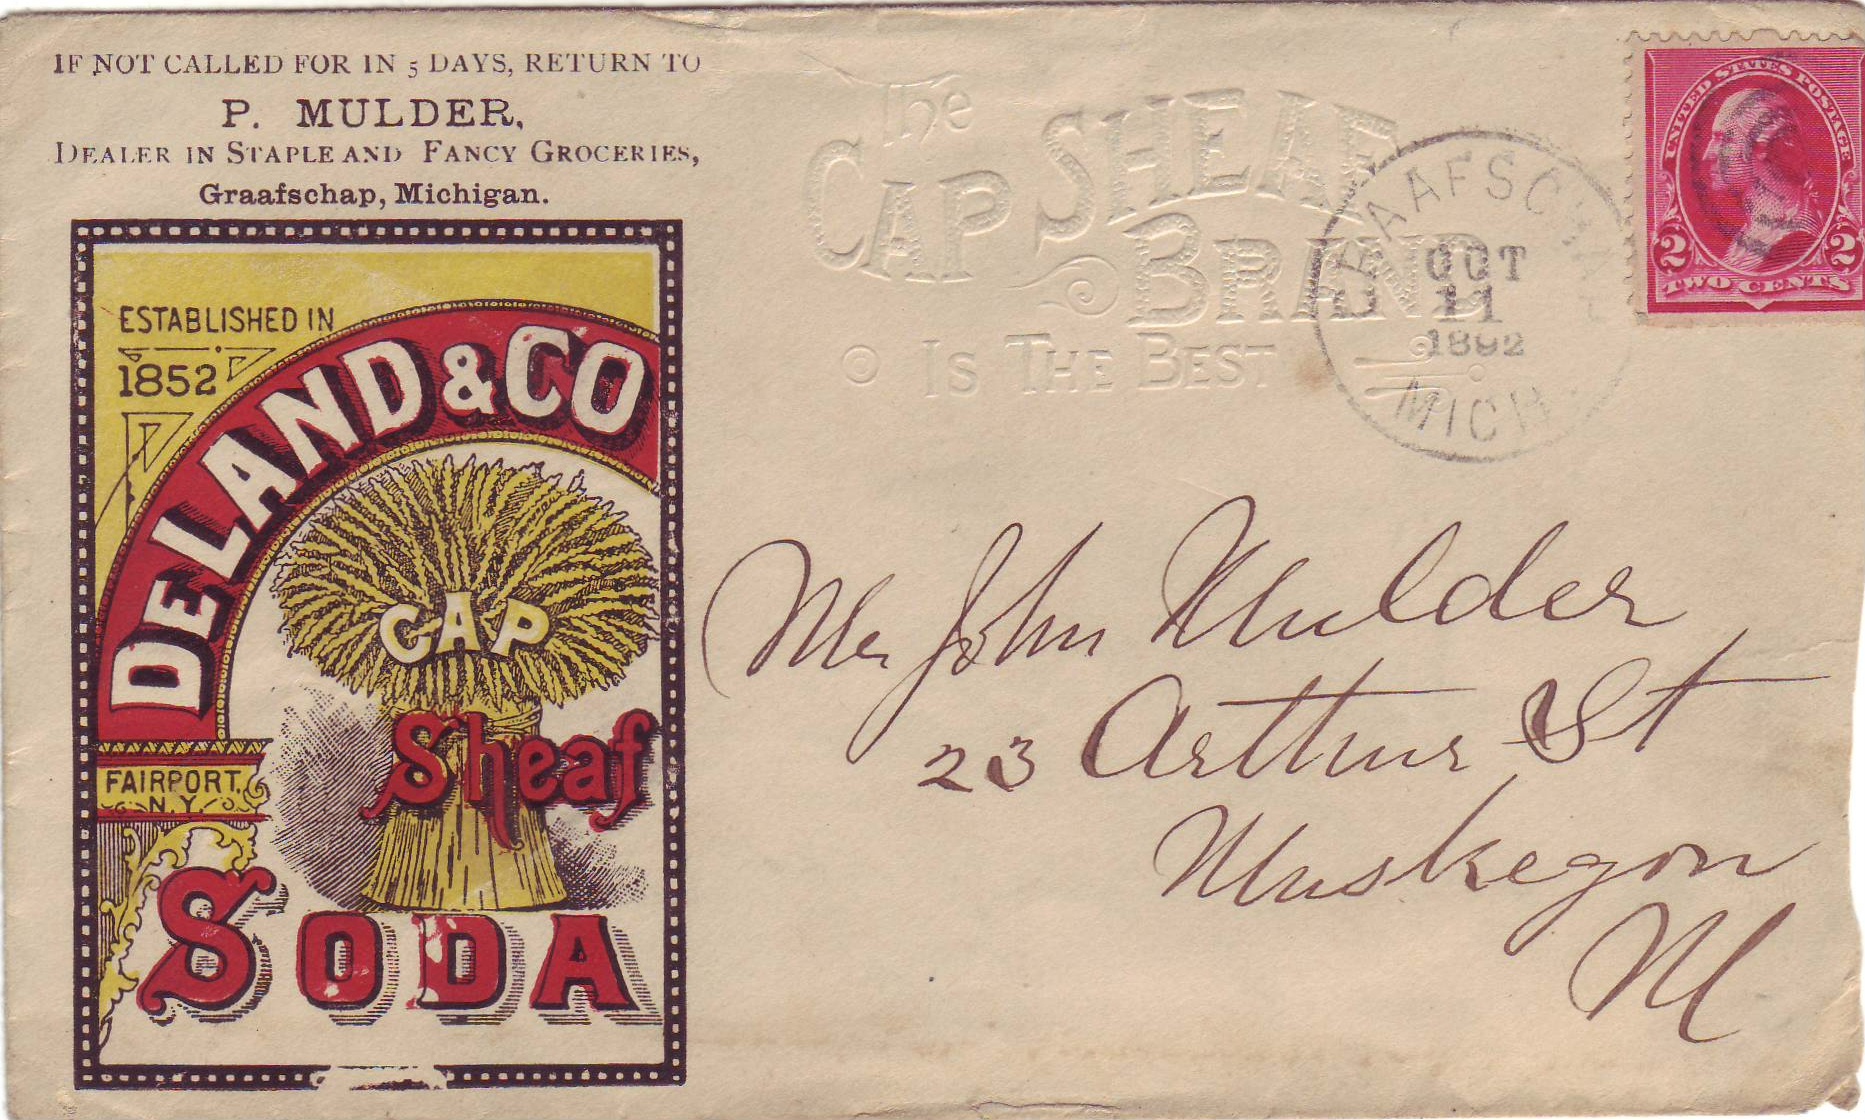 IF NOT CALLED FOR IN 5 DAYS, RETURN TO
P. MULDER,
DEALER IN STAPLE AND FANCY GROCERIES,
Graafschap, Michigan.
ESTABLISHED IN
1852
DELAND & CO
CAP
Sheaf
FAIRPORT,
N.Y.
SODA
The
CAP SHEAF
BRAND
IS THE BEST
GRAAFSCHAP
OCT
11
1892
MICH.
UNITED STATES POSTAGE
2 2
TWO CENTS
Mr John Mulder
23 Arthur St
Muskegon
M